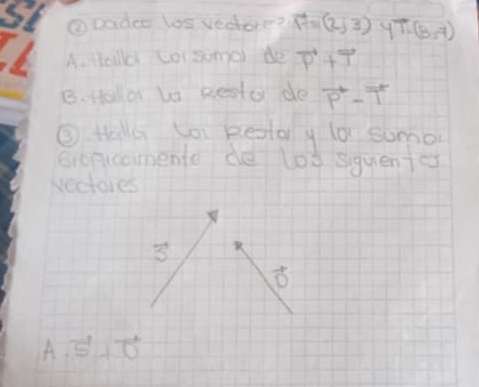 ② Dados los vectores P=(2,3) y T=(5,4)
A. Halla la suma de P+T
B. Hallar la Resta de P-T
③ Halla la Resta y la suma
Graficamente de los siguientes
vectores
S
U
A. S + U